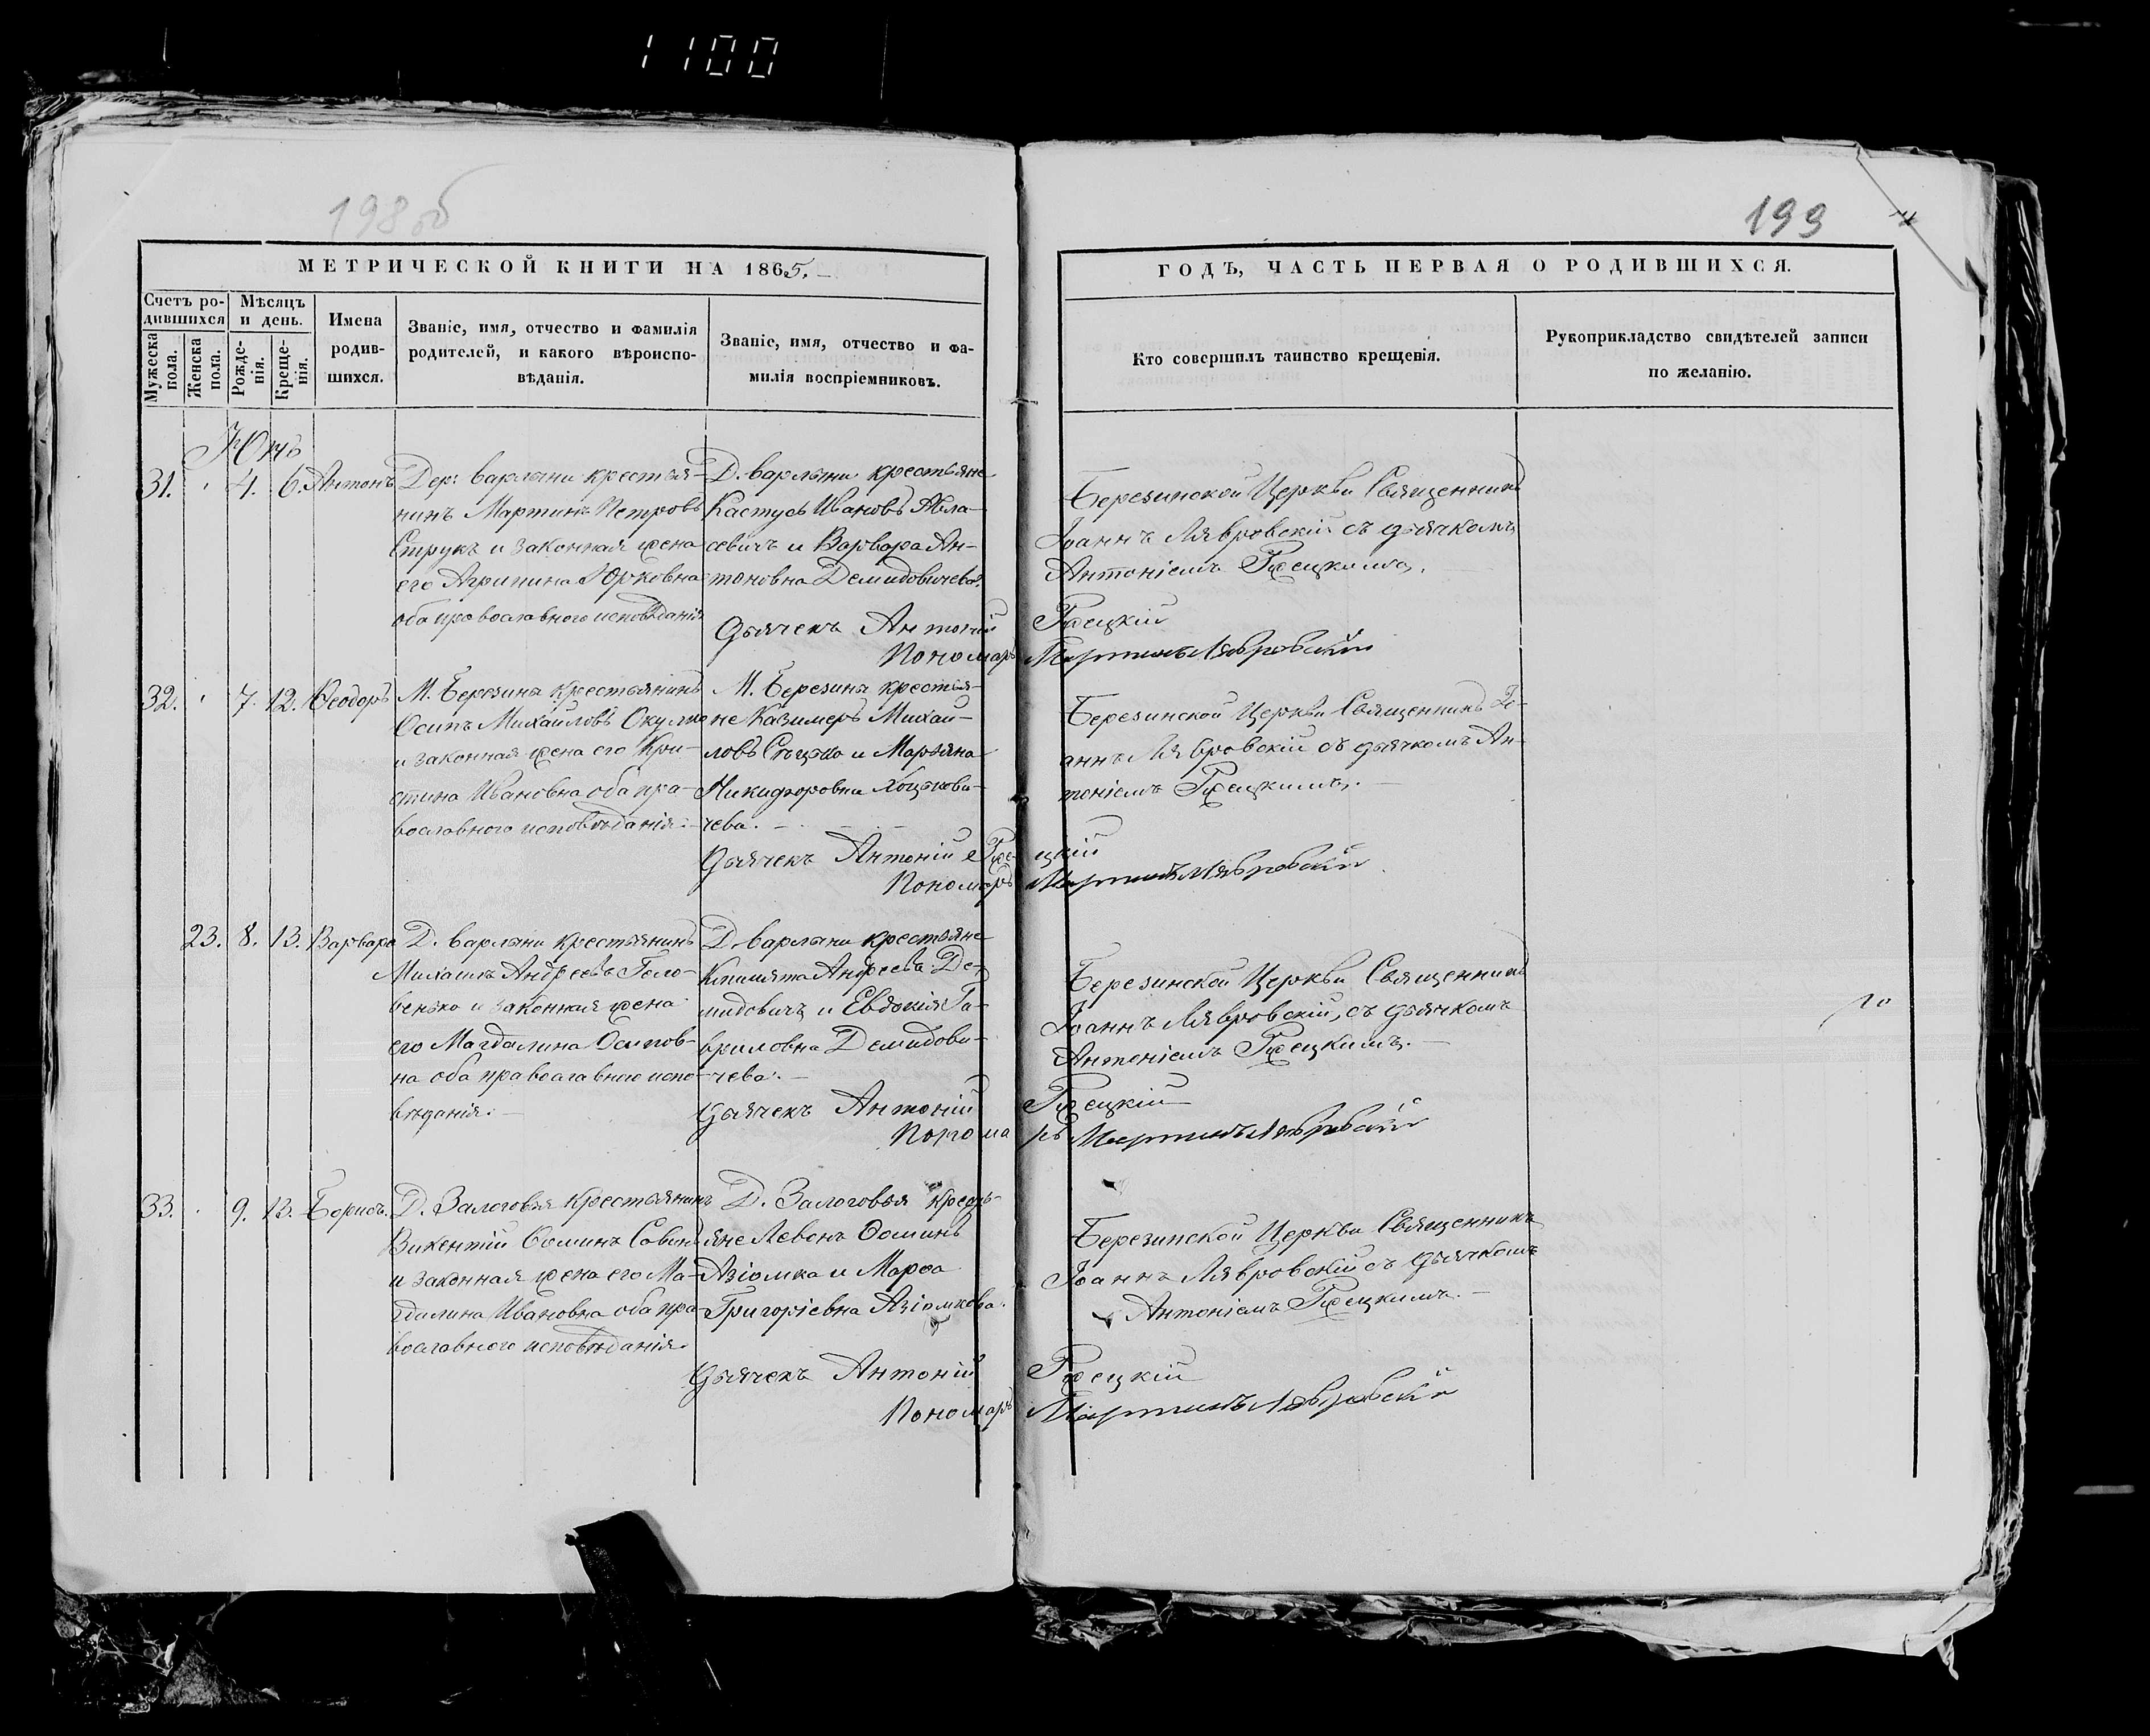 1100
198 об
199
МЕТРИЧЕСКОЙ КНИГИ НА 1865.
ГОДЪ, ЧАСТЬ ПЕРВАЯ О РОДИВШИХСЯ.
Счетъ ро-
дившихся
Мужеска пола.
Женска пола.
Мѣсяцъ
и день.
Рожде-
нія.
Креще-
нія.
Имена
родив-
шихся.
Званіе, имя, отчество и фамилія
родителей, и какого вѣроиспо-
вѣданія.
Званіе, имя, отчество и фа-
милія воспріемниковъ.
Кто совершилъ таинство крещенія.
Рукоприкладство свидѣтелей записи
по желанію.
31. 4. 6. Антонъ
Дер: Варлыни крестья-
нинъ Мартинъ Петровъ
Струкъ и законная жена
его Агрипина Юрковна
оба православного исповѣданія
Д. Варлыни крестьяне
Кастусь Ивановъ
севичъ и Варвара Ан-
тоновна Демидовичева.
Березинской Церкви Священникъ
Іоаннъ Лявровскій съ дьячкомъ
Антоніемъ
Дьячекъ Антоній
Пономарь Мартинъ Лявровскій
32. 7. 12. Ѳеодоръ
М. Березина крестьянинъ
Осипъ Михайловъ
и законная жена его Кри-
стина Ивановна оба пра-
вославного исповѣданія.
М. Березина крестья-
не Казимеръ Михай-
ловъ и Марьяна
Никифоровна
чева.
Березинской Церкви Священникъ Іо-
аннъ Лявровскій съ дьячкомъ Ан-
тоніемъ
Дьячекъ Антоній
Пономарь Мартинъ Лявровскій
23. 8. 13. Варвара
Д. Варлыни крестьянинъ
Михаилъ Андреевъ Голо-
венько и законная жена
его Магдалина Осипов-
на оба православного испо-
вѣданія.
Д. Варлыни крестьяне
Андреевъ Де-
мидовичъ и Евдокія Га-
вриловна Демидови-
чева.
Березинской Церкви Священникъ
Іоаннъ Лявровскій, съ дьячкомъ
Антоніемъ
Дьячекъ Антоній
Пономарь Мартинъ Лявровскій
33. 9. 13. Борисъ.
Д. Залоговья крестьянинъ
Викентій Ѳоминъ
и законная жена его Ма-
гдалина Ивановна оба пра-
вославного исповѣданія.
Д. Залоговья кресть-
яне Левонъ Ѳоминъ
Азіомка и Марѳа
Григоріевна Азіомкова.
Березинской Церкви Священникъ
Іоаннъ Лявровскій съ дьячкомъ
Антоніемъ
Дьячекъ Антоній
Пономарь Мартинъ Лявровскій